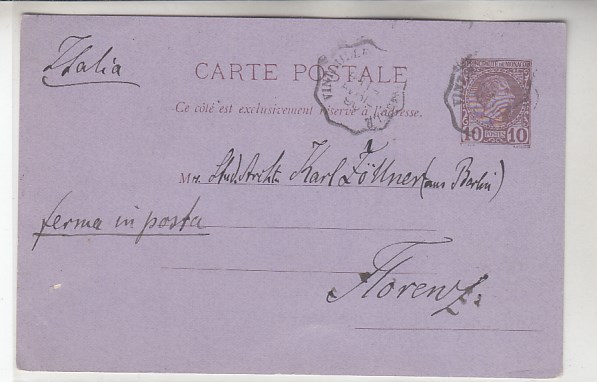 Italia
CARTE POSTALE
Ce côté est exclusivement réservé à l'adresse.
PRINCIPAUTÉ DE MONACO
10 POSTES 10
M Stud. Arkt. Karl Zöllner (aus Berlin)
ferma in posta
Florenz.